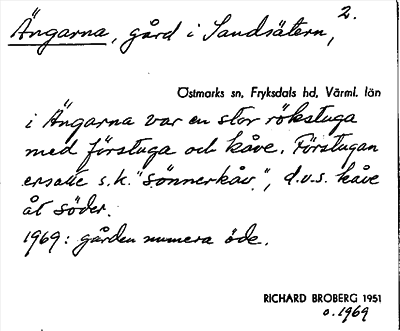 Ängarna, gård i Sandsätern, 2.
Östmarks sn, Fryksdals hd, Värml. län
i Ängarna var en stor rökstuga
med förstuga och kåve. Förstugan
ersatte s.k. "sönnerkåv", d.v.s. kåve
åt söder.
1969: gården numera öde.
RICHARD BROBERG 1951
o. 1969